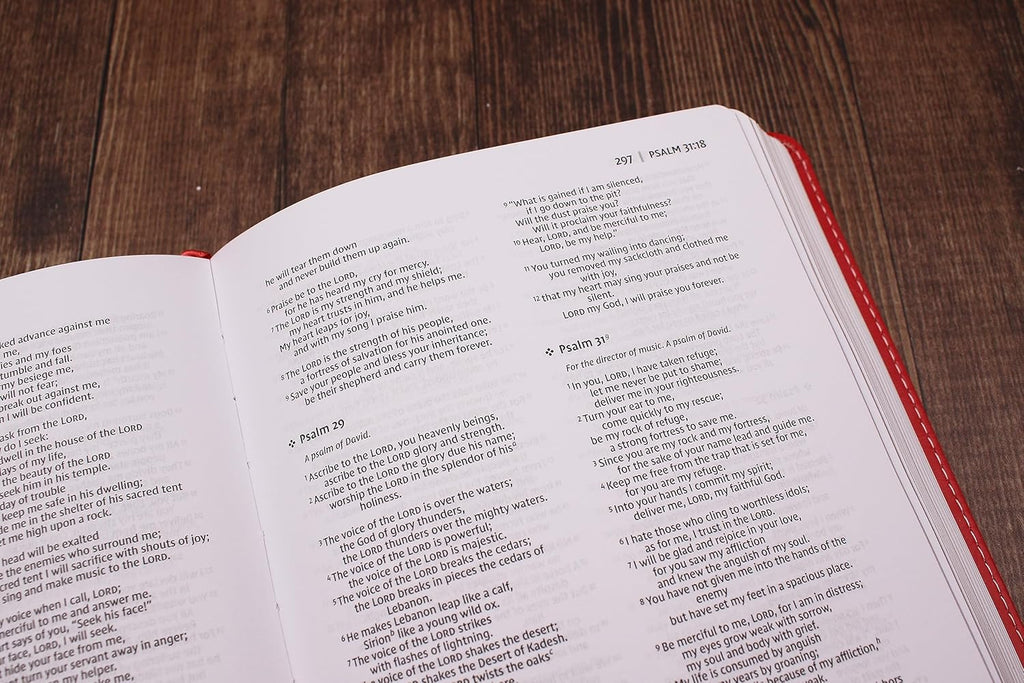 ked advance against me
me,
ies and my foes
tumble and fall.
my besiege me,
will not fear;
break out against me,
n I will be confident.
ask from the LORD,
do I seek:
dwell in the house of the LORD
days of my life,
the beauty of the LORD
seek him in his temple.
day of trouble
keep me safe in his dwelling;
de me in the shelter of his sacred tent
et me high upon a rock.
head will be exalted
e the enemies who surround me;
cred tent I will sacrifice with shouts of joy;
sing and make music to the LORD.
y voice when I call, LORD;
merciful to me and answer me.
rt says of you, "Seek his face!"
r face, LORD, I will seek.
t hide your face from me,
t turn your servant away in anger;
my helper.
297 | PSALM 31:18
he will tear them down
and never build them up again.
6 Praise be to the LORD,
for he has heard my cry for mercy.
7 The LORD is my strength and my shield;
my heart trusts in him, and he helps me.
My heart leaps for joy,
and with my song I praise him.
8 The LORD is the strength of his people,
a fortress of salvation for his anointed one.
9 Save your people and bless your inheritance;
be their shepherd and carry them forever.
Psalm 29
A psalm of David.
1 Ascribe to the LORD, you heavenly beings,
ascribe to the LORD glory and strength.
2 Ascribe to the LORD the glory due his name;
worship the LORD in the splendor of his
holiness.
3 The voice of the LORD is over the waters;
the God of glory thunders,
the LORD thunders over the mighty waters.
4 The voice of the LORD is powerful;
the voice of the LORD is majestic.
5 The voice of the LORD breaks the cedars;
the LORD breaks in pieces the cedars of
Lebanon.
6 He makes Lebanon leap like a calf,
Sirion like a young wild ox.
7 The voice of the LORD strikes
with flashes of lightning.
of the LORD shakes the desert;
shakes the Desert of Kadesh.
LORD twists the oaks
9 "What is gained if I am silenced,
if I go down to the pit?
Will the dust praise you?
Will it proclaim your faithfulness?
10 Hear, LORD, and be merciful to me;
LORD, be my help."
11 You turned my wailing into dancing;
you removed my sackcloth and clothed me
with joy,
12 that my heart may sing your praises and not be
silent.
LORD my God, I will praise you forever.
Psalm 31
For the director of music. A psalm of David.
1 In you, LORD, I have taken refuge;
let me never be put to shame;
deliver me in your righteousness.
2 Turn your ear to me,
come quickly to my rescue;
be my rock of refuge,
a strong fortress to save me.
3 Since you are my rock and my fortress,
for the sake of your name lead and guide me
4 Keep me free from the trap that is set for me,
for you are my refuge.
5 Into your hands I commit my spirit;
deliver me, LORD, my faithful God.
6 I hate those who cling to worthless idols;
as for me, I trust in the LORD.
7 I will be glad and rejoice in your love,
for you saw my affliction
and knew the anguish of my soul.
8 You have not given me into the hands of the
enemy
but have set my feet in a spacious place.
9 Be merciful to me, LORD, for I am in distress;
my eyes grow weak with sorrow,
my soul and body with grief.
My life is consumed by anguish
years by groaning;
because of my affliction,